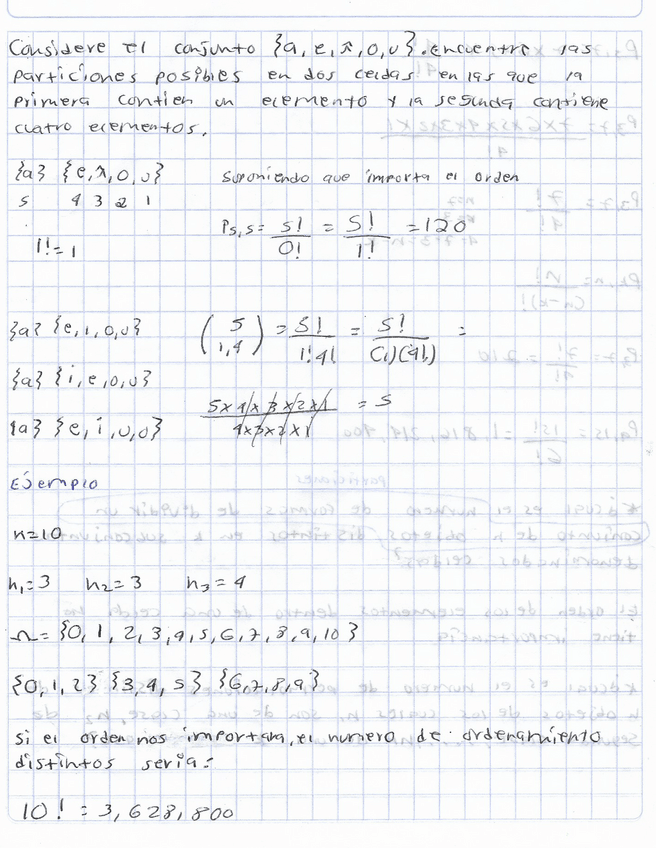 Considere el conjunto {a, e, i, o, u}. encuentre las
particiones posibles en dos celdas en las que la
primera contien un elemento y la segunda contiene
cuatro elementos.
{a} {e, i, o, u} suponiendo que importa el orden
5 4 3 2 1
P5,5 = 5!/0! = 5!/1! = 120
1! = 1
{a} {e, i, o, u} (5 1,4) = 5!/1!4! = 5!/(1)(4!) =
{a} {i, e, o, u}
5x4x3x2x1/4x3x2x1 = 5
{a} {e, i, u, o}
Ejemplo
n=10
n1=3 n2=3 n3=4
Ω = {0, 1, 2, 3, 4, 5, 6, 7, 8, 9, 10}
{0, 1, 2} {3, 4, 5} {6, 7, 8, 9}
si el orden nos importara, el numero de ordenamiento
distintos seria:
10! = 3,628,800